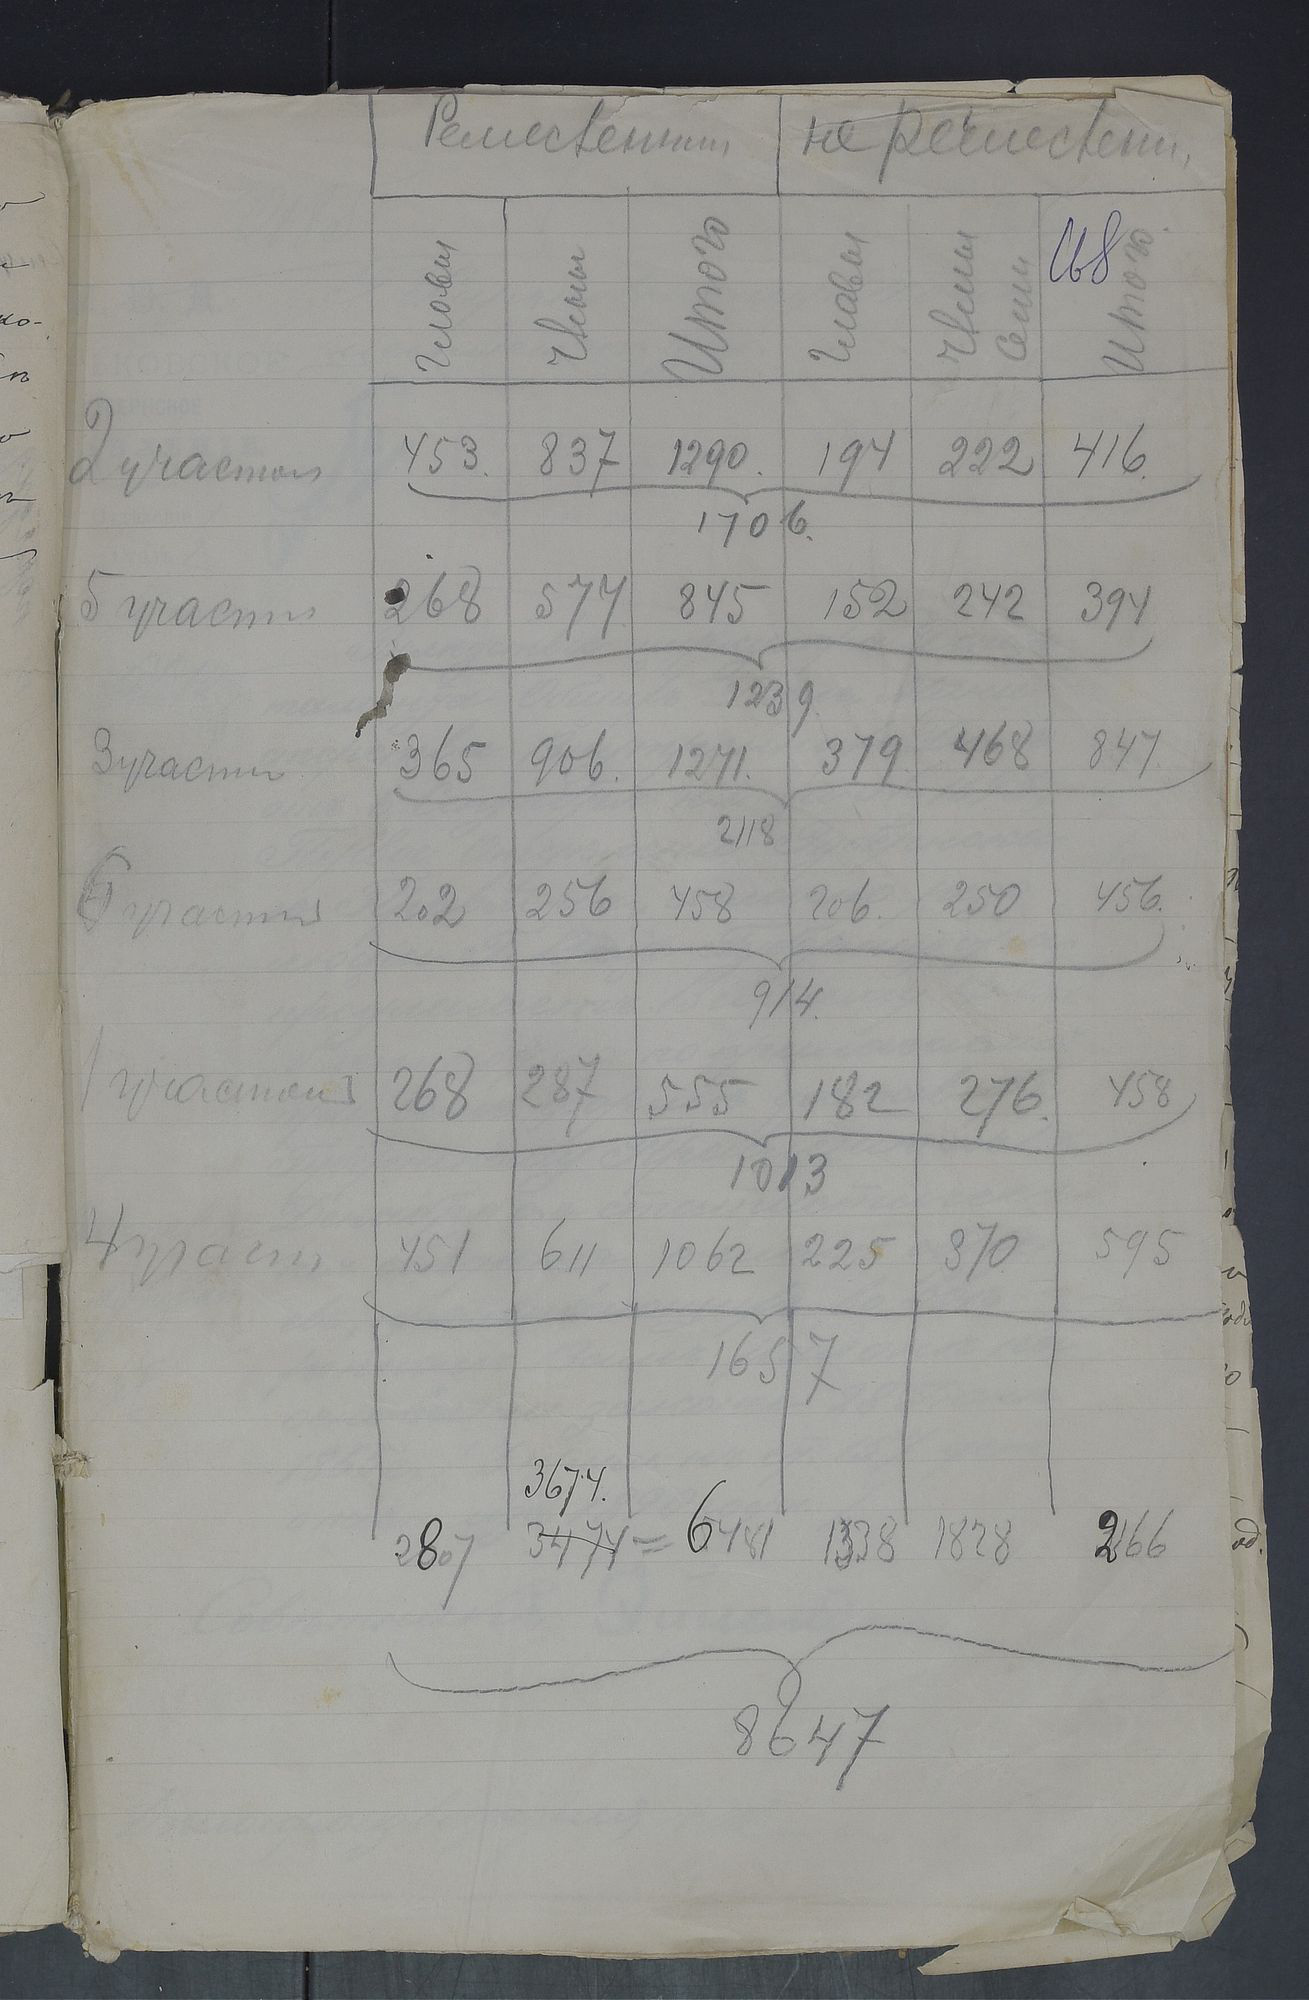 Ремественники не ремествени,
Главы Члены Итого Главы Члены Семи Итого
168
2 участок 453. 837 1290. 194 222 416.
1706.
5 участок 268 577 845 152 242 394
1239.
3 участок 365 906. 1271. 379 468 847
2118
6 участок 202 256 458 206. 250 456.
914.
1 участок 268 287 555 182 276. 458
1013
4 участ 451 611 1062 225 370 595
1657
3674.
2807 3474 = 6481 1338 1828 2166
8647